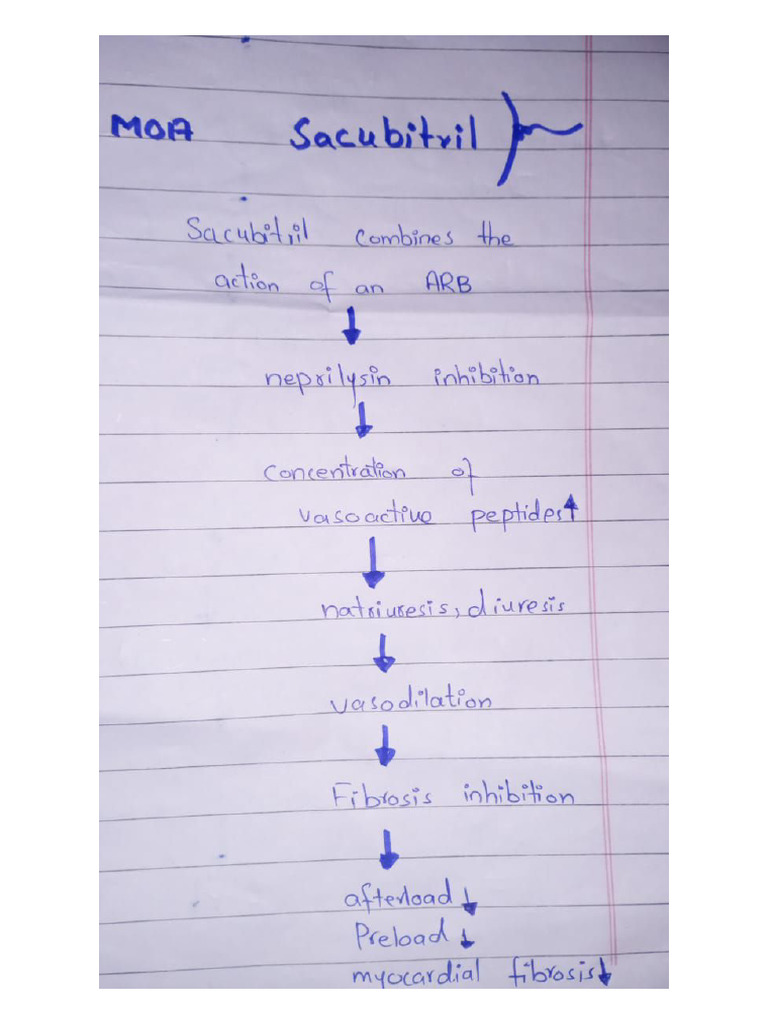 MOA Sacubitril
Sacubitril combines the
action of an ARB
↓
neprilysin inhibition
↓
concentration of
vasoactive peptides↑
↓
natriuresis, diuresis
↓
vasodilation
↓
Fibrosis inhibition
↓
afterload ↓
Preload ↓
myocardial fibrosis↓